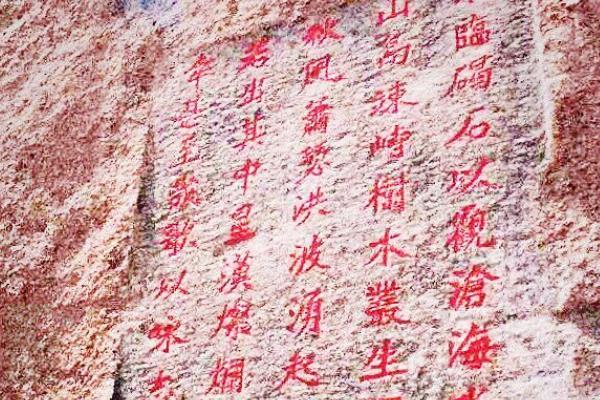 臨碣石以觀滄海
山島竦峙樹木叢生
秋風蕭瑟洪波湧起
若出其中星漢燦爛
幸甚至哉歌以咏